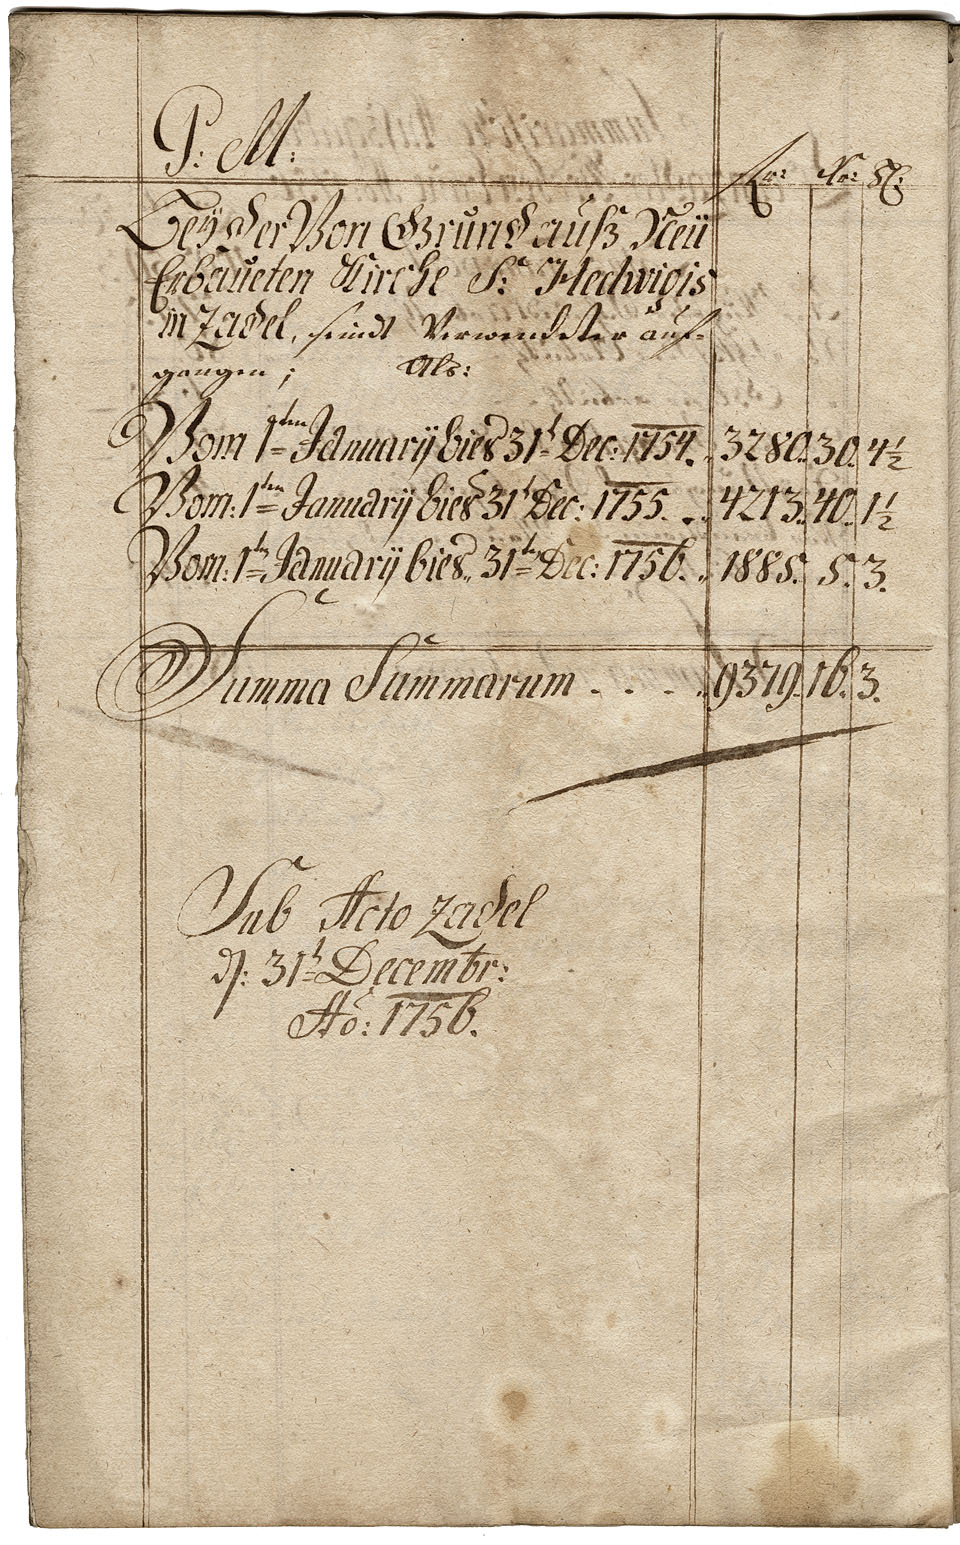 P: M:
fr: Xr: ₰:
Beÿ der Von Grund auß Neü
Erbaueten Kirche S: Hedwigis
in Zadel, seindt Verwendeter auf-
gangen; Als:
Vom 1ten Januarÿ bies 31t Dec: 1754. 3280. 30. 4½
Vom: 1ten Januarÿ bies 31t Dec: 1755. 4213. 40. 1½
Vom: 1ten Januarÿ bies 31ten Dec: 1756. 1885. 5. 3.
Summa Summarum . . . . 9379. 16. 3.
Sub Acto Zadel
d: 31t Decembr:
Ao: 1756.